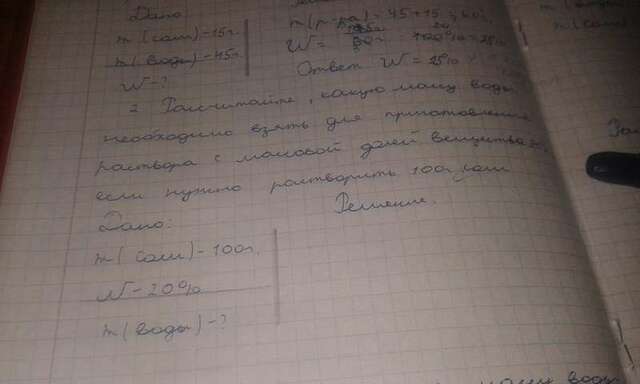 Дано
m(соли)-15г. m(р-ра)=45+15=60г.
m(воды)-45г. W= 100%=25%
W-? Ответ W=25%
2 Рассчитайте, какую массу воды
необходимо взять для приготовления
раствора с массовой долей вещества
если нужно растворить 100г соли
Дано: Решение.
m(соли)-100г.
W-20%
m(воды)-?